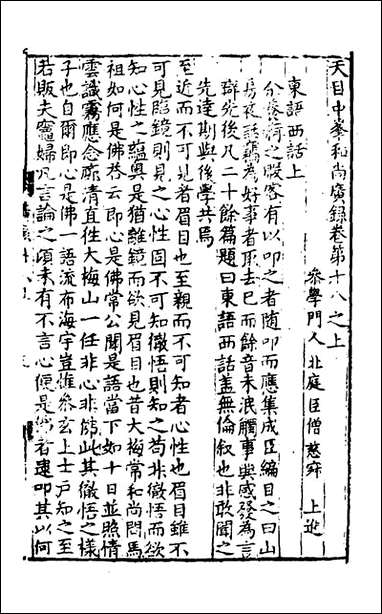 天目中峯和尚廣錄卷第十八之上
參學門人北庭臣僧慈寂上進
東語西話上
余養病之暇客有以叩之者隨叩而應集成巨編目之曰山
房夜話編為好事者取去已而餘音未泯觸事與感發為言
辭先後凡二十餘篇題曰東語西話蓋無倫叙也非敢聞之
先達期與後學共焉
至近而不可見者眉目也至親而不可知者心性也眉目雖不
可見臨鏡則見之心性固不可知徹悟則知之苟非徹悟而欲
知心性之蘊奧是猶離鏡而欲見眉目也昔大梅常和尚問馬
祖如何是佛荅云即心是佛常公聞是語當下如十日並照情
雲識霧應念廓清直徃大梅山一任非心非佛此其徹悟之樣
子也自爾即心是佛一語流布海宇豈惟參玄上士户知之至
若販夫竈婦凡言論之頃未有不言心便是佛者逮叩其以何